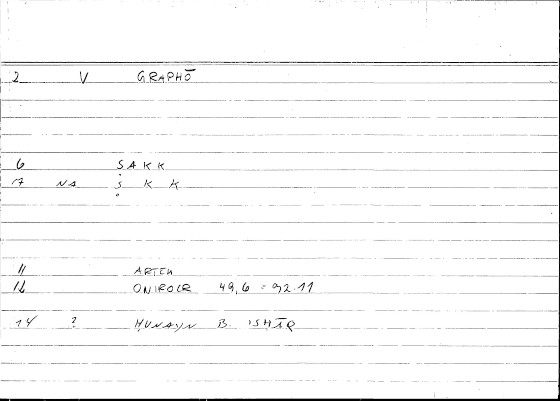 2 V GRAPHŌ
6 ṢAKK
17 NA ṣ̣ K K
11 ARTEM
12 ONIROCR 49,6 = 92.11
14 ? ḤUNAYN B. ISḤĀQ